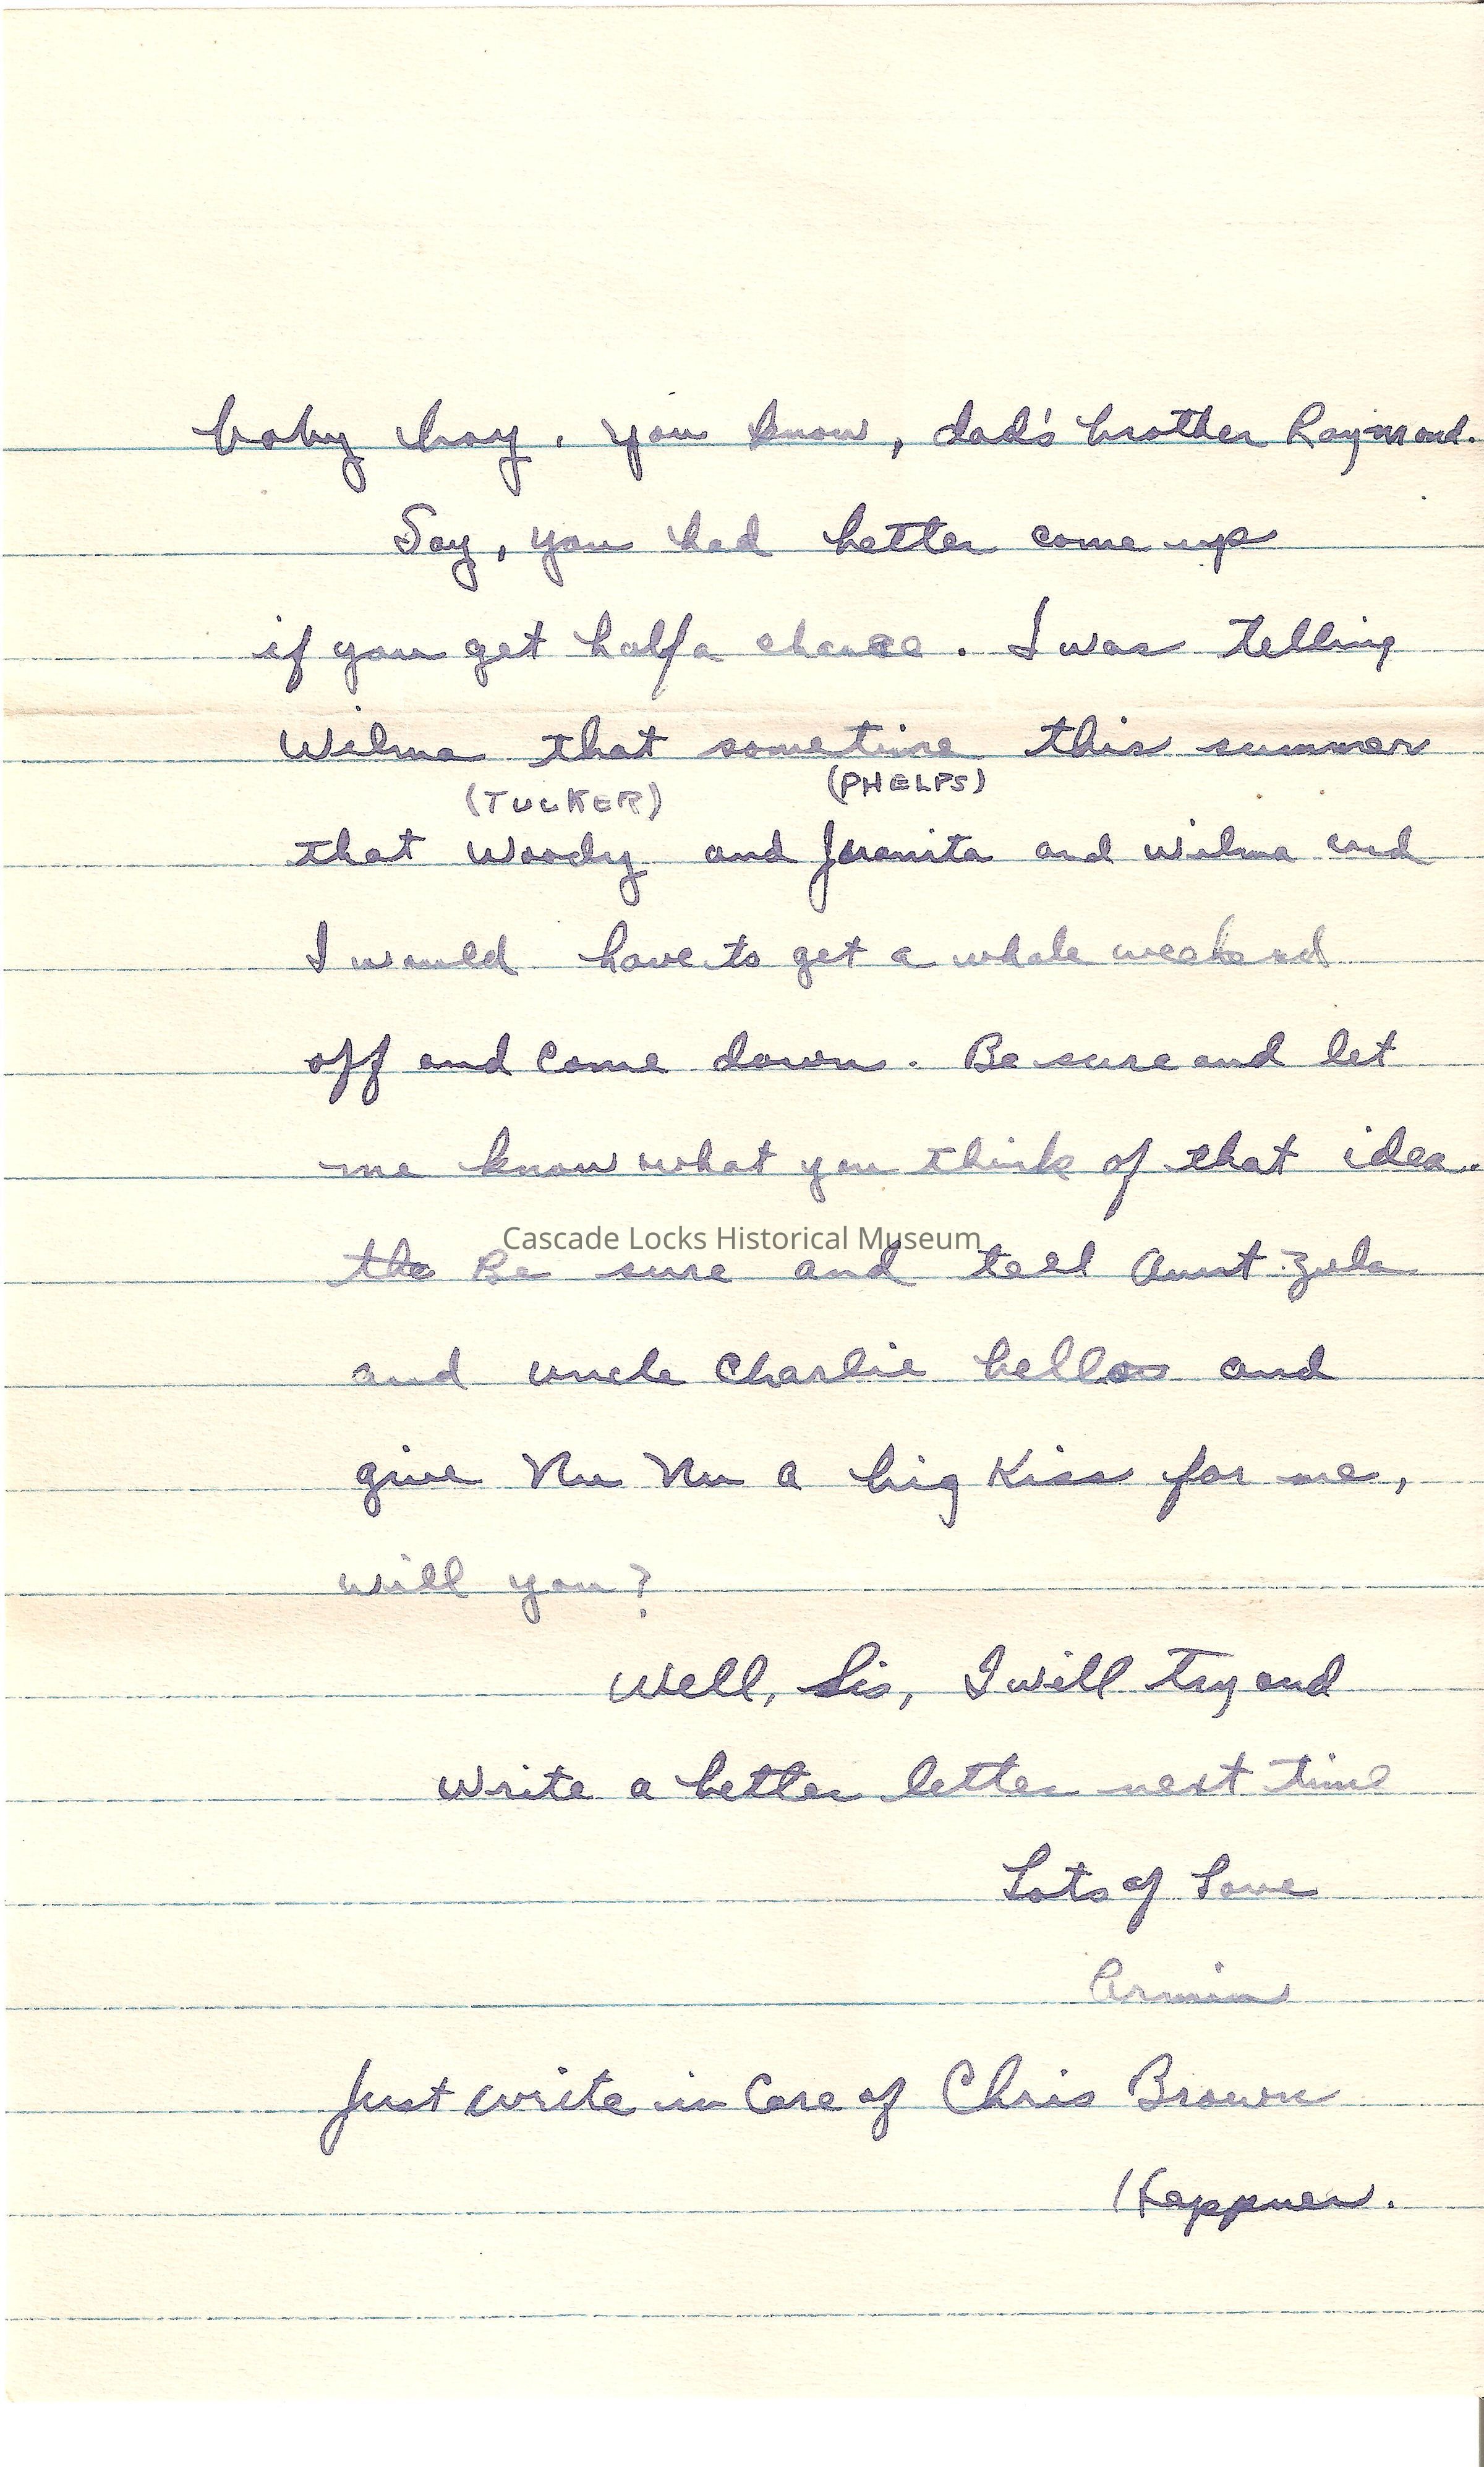 baby boy. You know, dad's brother Raymond.
Say, you had better come up
if you get half a chance. I was telling
Wilma that sometime this summer
(TUCKER) (PHELPS)
that Woody and Juanita and Wilma and
I would have to get a whole weekend
off and come down. Be sure and let
me know what you think of that idea.
Cascade Locks Historical Museum
the Be sure and tell Aunt Zula
and uncle Charlie hellos and
give Nu Nu a big Kiss for me,
will you?
Well, Sis, I will try and
write a better letter next time
Lots of Love
Armin
Just write in Care of Chris Brown
Heppner.